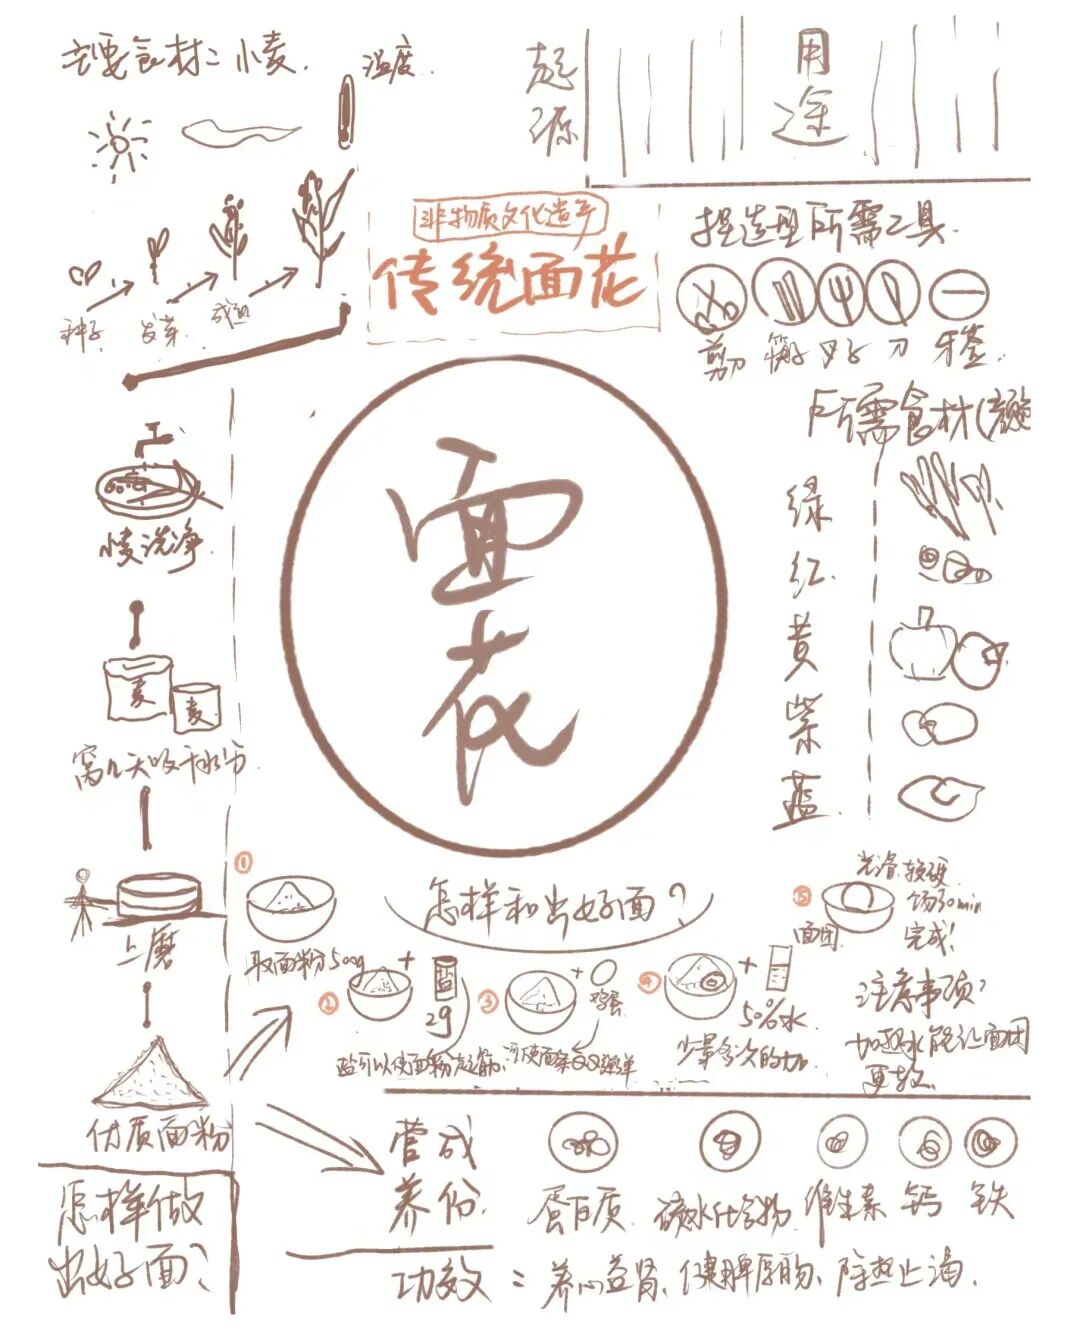 主要食材：小麦.
温度.
种子
发芽
成熟
起源
用途
非物质文化遗产
传统面花
捏造型所需工具
剪刀
筷子
叉子
刀
牙签.
所需食材(颜
绿
红
黄
紫
蓝
面花
小麦洗净.
麦
麦
窝几天吸干水分
上磨
优质面粉
怎样做
出好面？
怎样和出好面？
①
取面粉500g
②
+
盐
2g
盐可以使面粉起筋
③
+
鸡蛋
④
+
50%水
少量多次的加
⑤
面团.
光滑.较硬
饧30min
完成！
注意事项？
加热水能让面团
更软.
营养成份.
蛋白质.
碳水化合物
维生素
钙
铁
功效＝养心益肾、健脾厚肠、除热止渴.